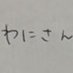 わにさん